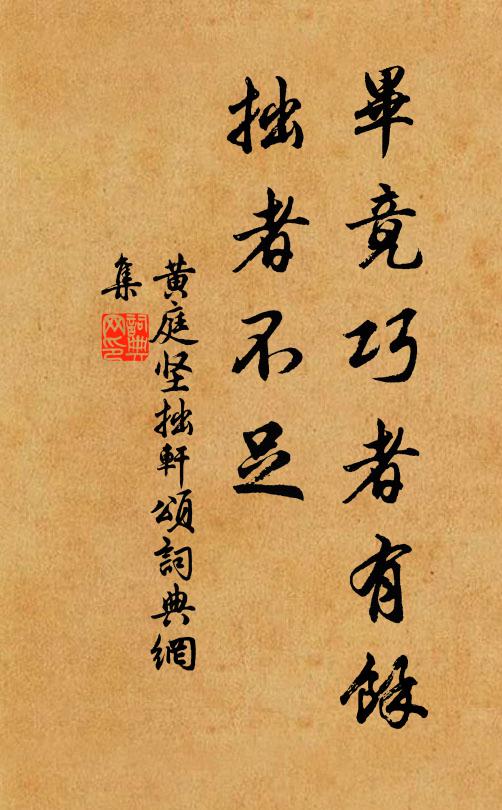 畢竟巧者有餘
拙者不足
黄庭坚拙軒頌詞典網
集
詞典
网印